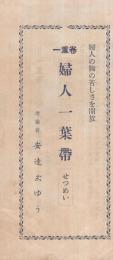 婦人の胸の苦しさを開放
一重巻
婦人一葉帶
せつめい
考案者
安達玄ゆう